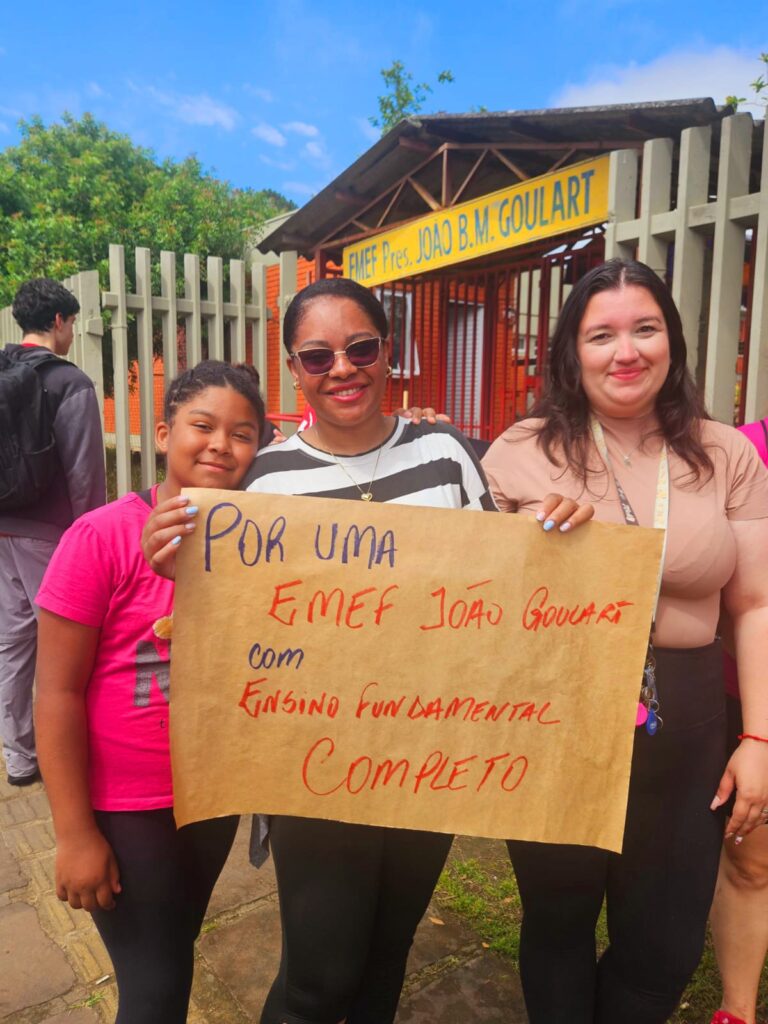 EMEF Pres. JOÃO B.M. GOULART
POR UMA
EMEF JOÃO GOULART
COM
ENSINO FUNDAMENTAL
COMPLETO